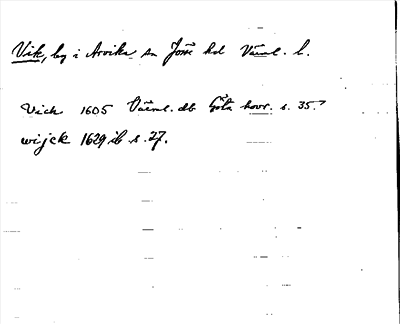 Vik, by i Arvika sn Jösse hd Värml. l.
Vick 1605 Värml. db Göta hovr. s. 35.
wijck 1629 ib s. 27.